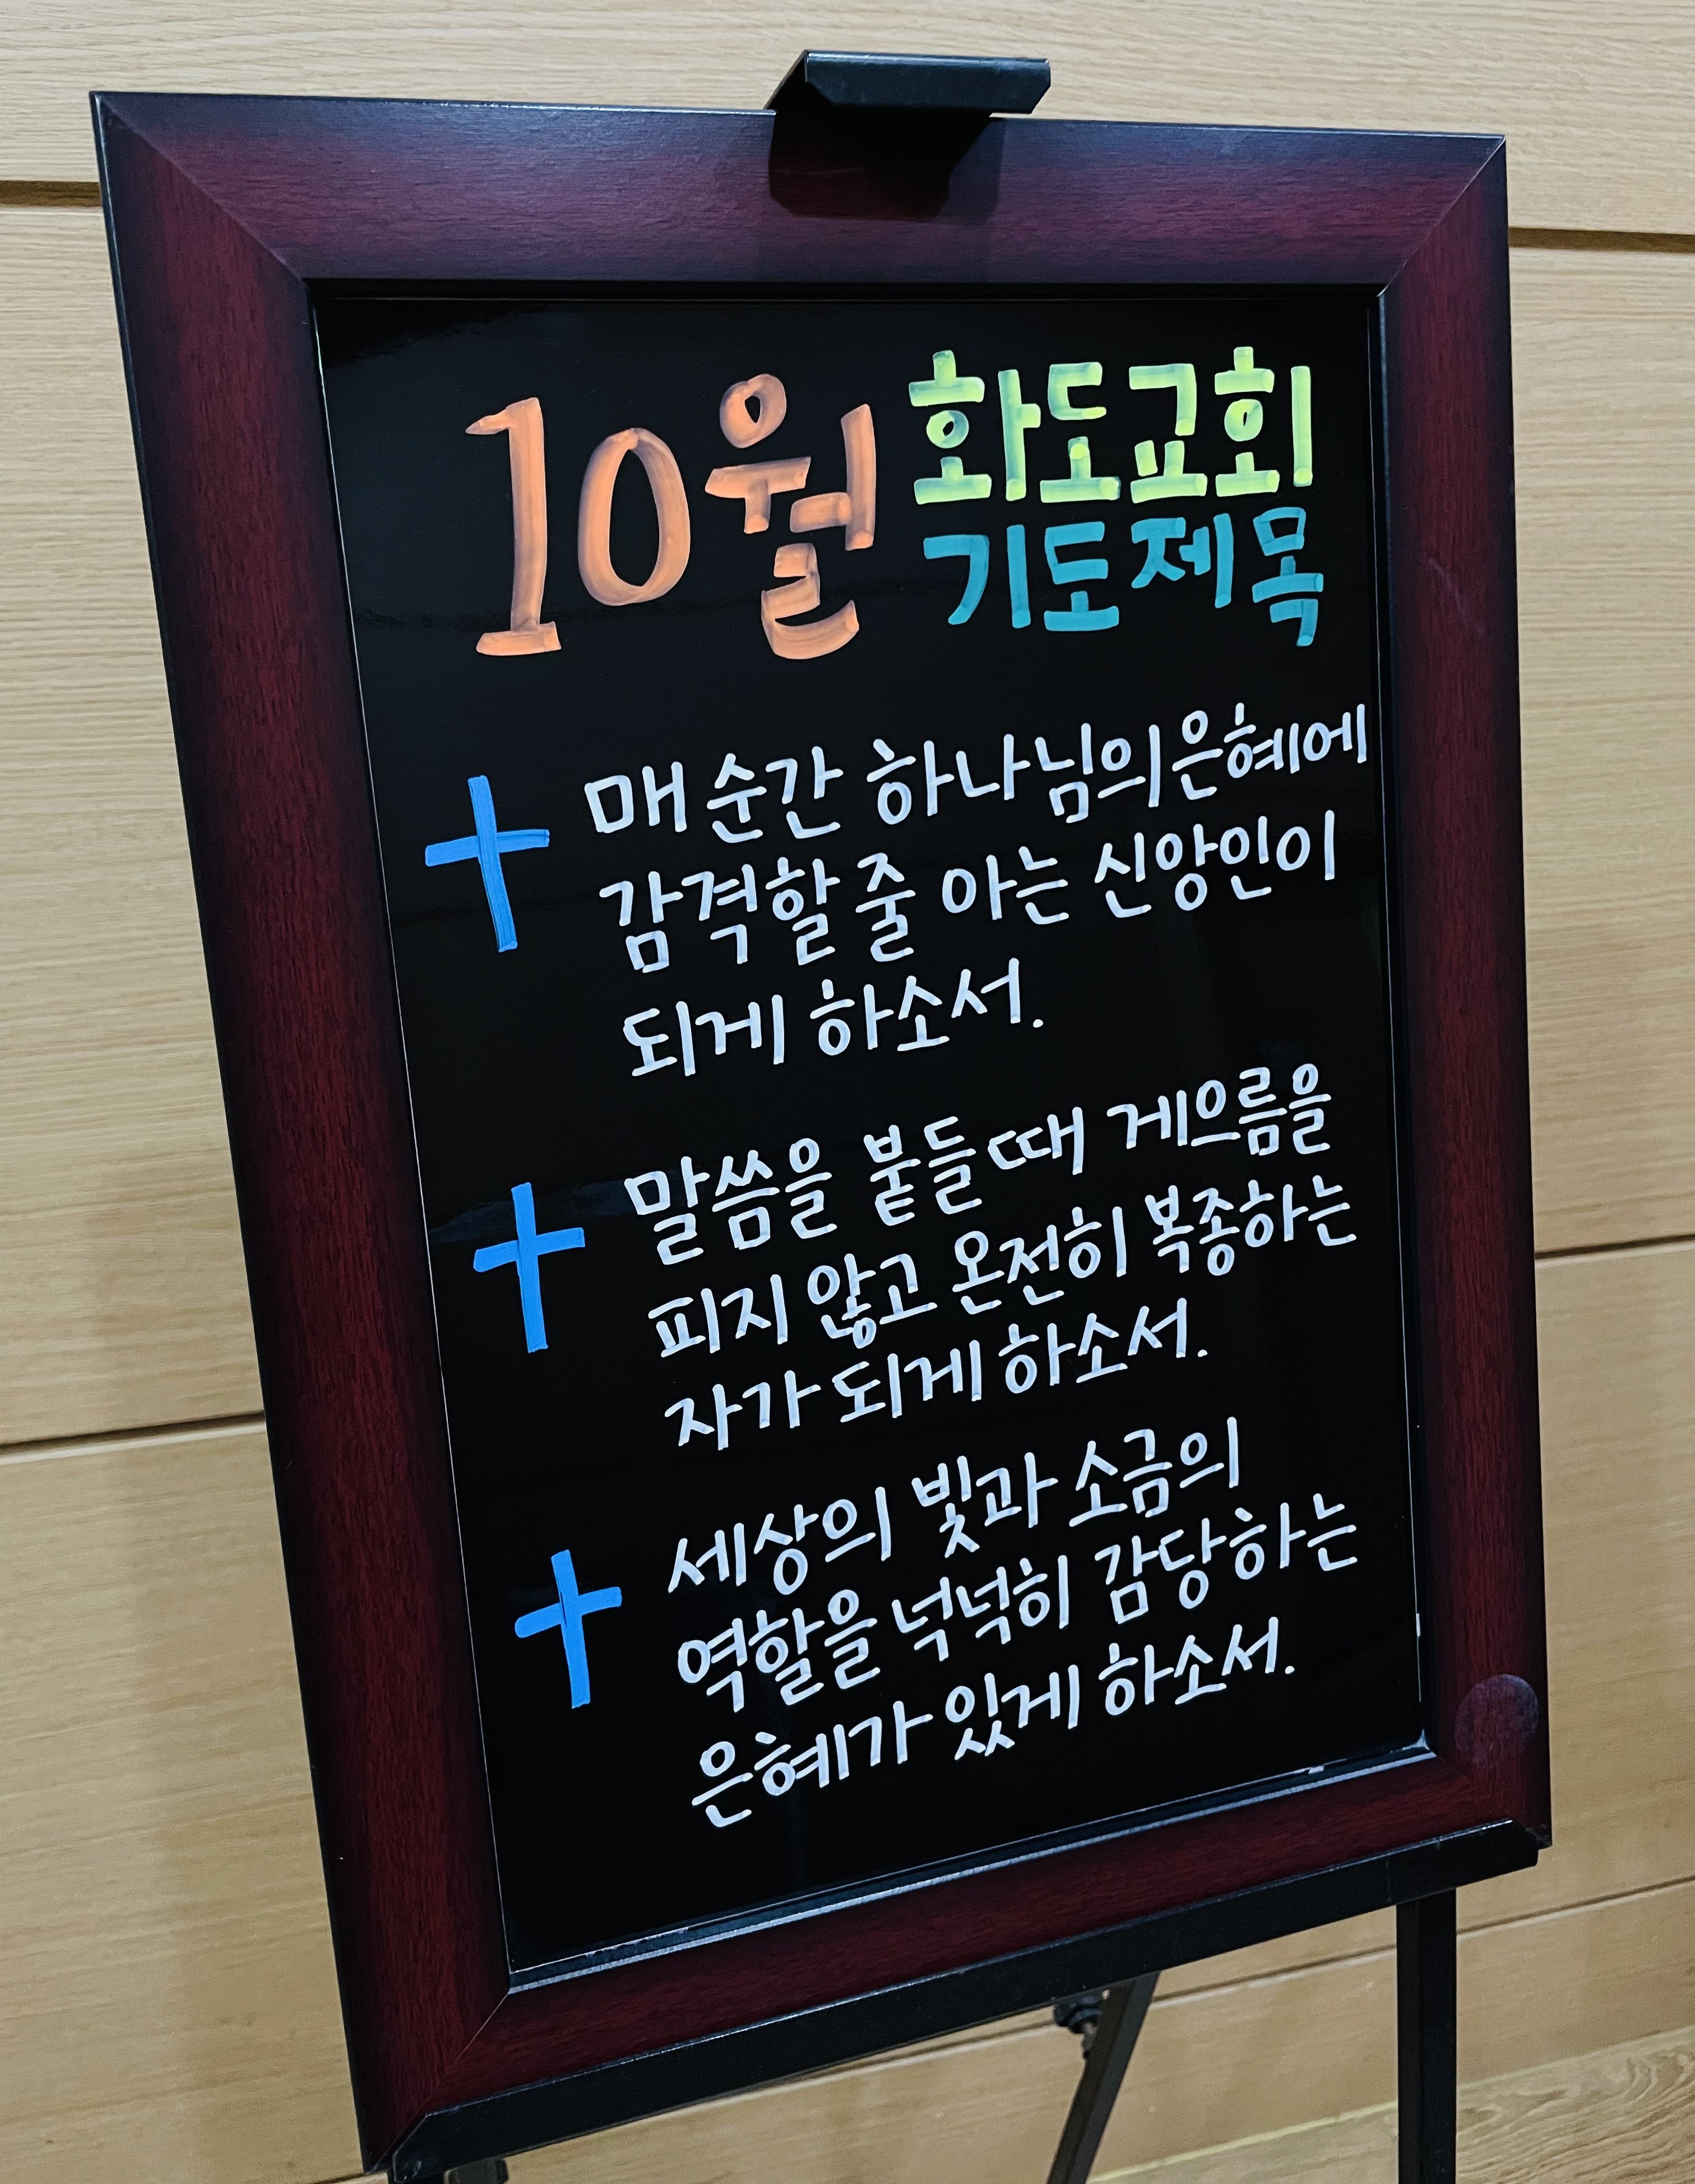 10월 화도교회
기도제목
매 순간 하나님의 은혜에
감격할 줄 아는 신앙인이
되게 하소서.
말씀을 붙들때 게으름을
피지 않고 온전히 복종하는
자가 되게 하소서.
세상의 빛과 소금의
역할을 넉넉히 감당하는
은혜가 있게 하소서.